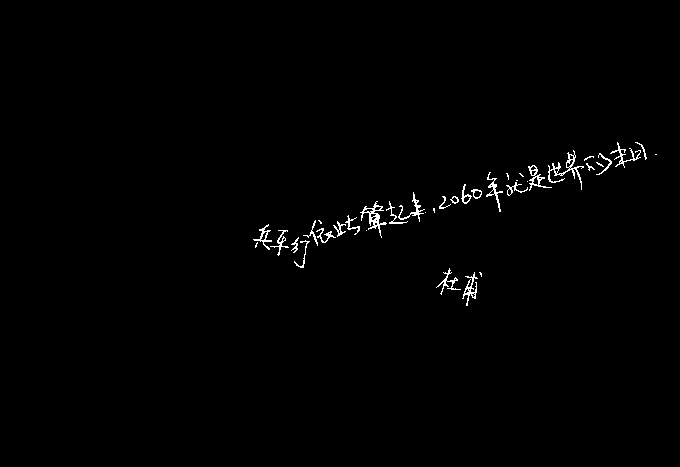 兵车行依此算起来,2060年就是世界的末日.
杜甫